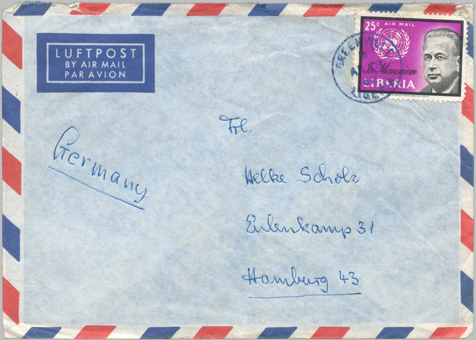 LUFTPOST
BY AIR MAIL
PAR AVION
25c AIR MAIL
In Memoriam
LIBERIA
Germany
Frl.
Helke Scholz
Eulenkamp 31
Hamburg 43